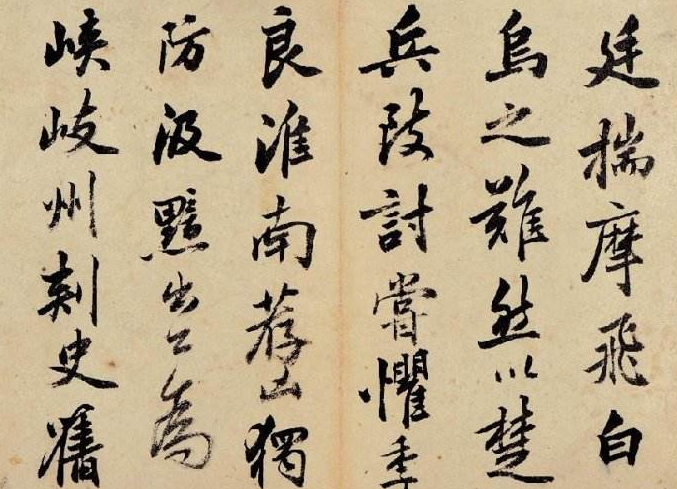 廷揣摩飛白
烏之難然以楚
兵討嘗懼季
良淮南荐獨
防汲黯出公為
峽岐州刺史舊